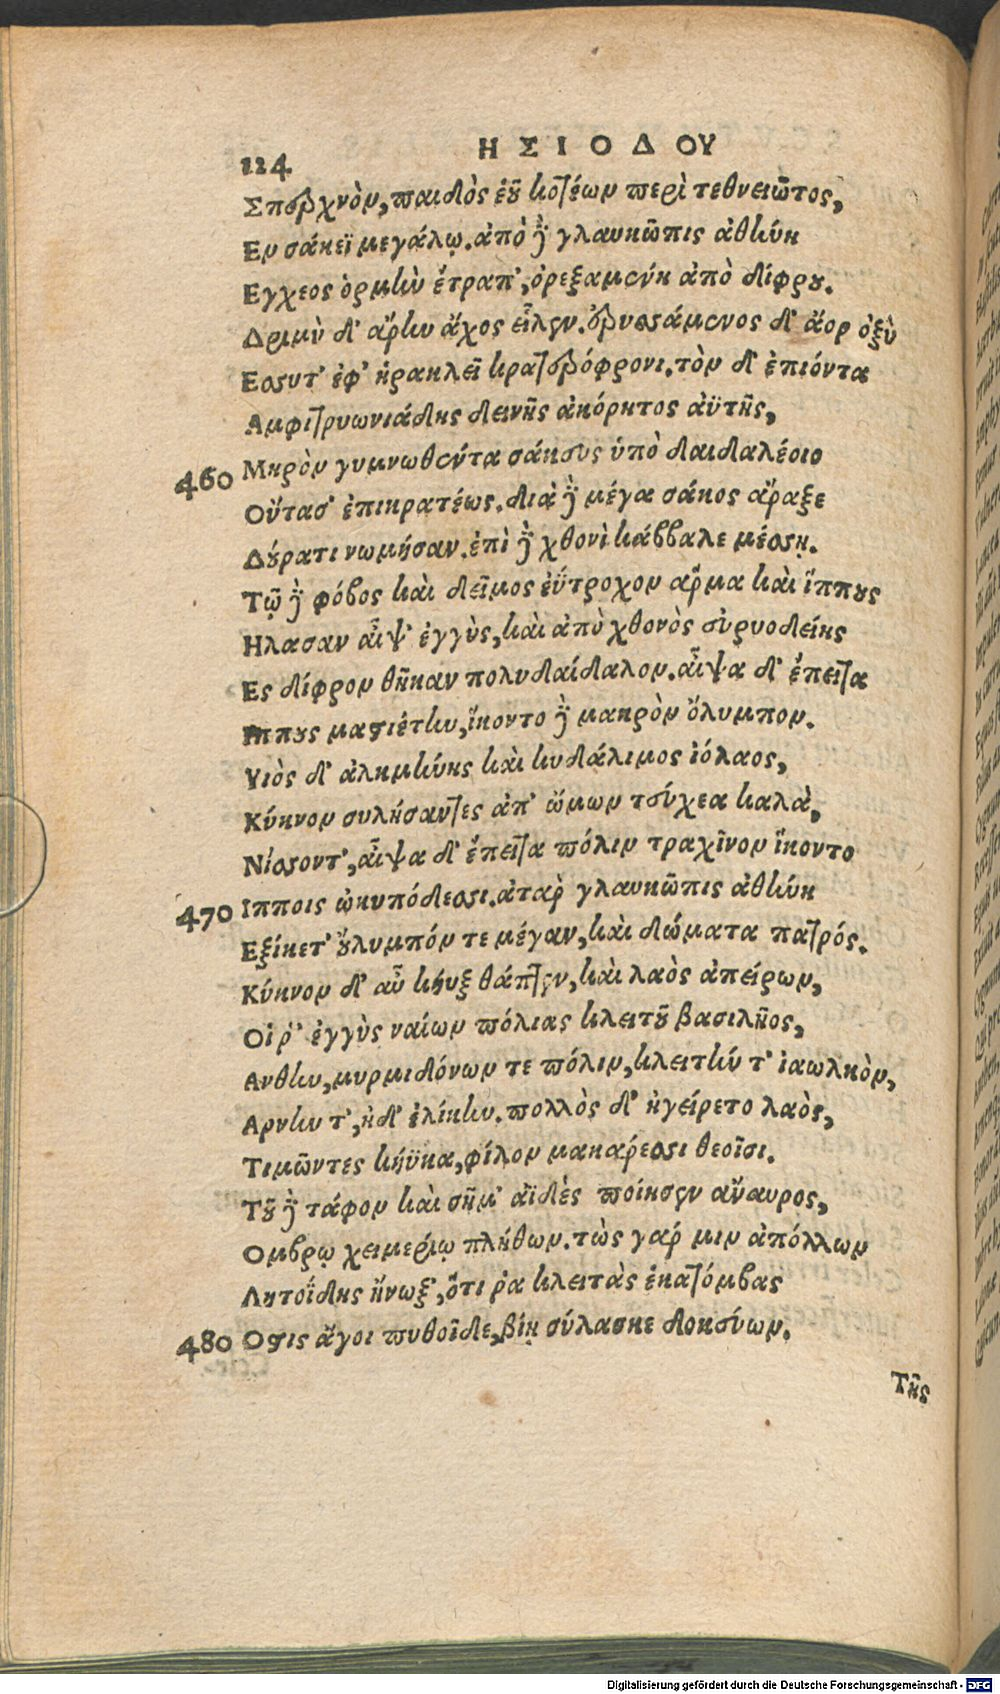 124
ΗΣΙΟΔΟΥ
Σπερχνὸν, παιδὸς ἑοῦ κοτέων περὶ τεθνειῶτος,
Εν σάκεϊ μεγάλῳ. ἀπὸ δὲ γλαυκῶπις ἀθήνη
Εγχεος ὁρμὴν ἔτραπ', ὀρεξαμένη ἀπὸ δίφρου.
Δριμὺ δ' ἄρην ἄχος εἷλεν. ἐρυσσάμενος δ' ἄορ ὀξὺ
Εσσυτ' ἐφ' ἡρακλεῖ κρατερόφρονι. τὸν δ' ἐπιόντα
Αμφιτρυωνιάδης δεινῆς ἀκόρητος ἀϋτῆς,
460 Μηρὸν γυμνωθέντα σάκευς ὑπὸ δαιδαλέοιο
Οὔτασ' ἐπικρατέως. διὰ δὲ μέγα σάκος ἄραξε
Δούρατι νωμήσαν. ἐπὶ δὲ χθονὶ κάββαλε μέσσῃ.
Τῷ δὲ φόβος καὶ δεῖμος ἐΰτροχον ἅρμα καὶ ἵππους
Ηλασαν αἶψ' ἐγγὺς, καὶ ἀπὸ χθονὸς εὐρυοδείης
Ες δίφρον θῆκαν πολυδαίδαλον. αἶψα δ' ἔπειτα
Ιππους μαστιέτην, ἵκοντο δὲ μακρὸν ὄλυμπον.
Υιὸς δ' ἀλκμήνης καὶ κυδάλιμος ἰόλαος,
Κύκνον συλήσαντες ἀπ' ὤμων τεύχεα καλὰ,
Νίσσοντ', αἶψα δ' ἔπειτα πόλιν τραχῖνον ἵκοντο
470 Ιπποις ὠκυπόδεσσι. ἀτὰρ γλαυκῶπις ἀθήνη
Εξίκετ' οὔλυμπόν τε μέγαν, καὶ δώματα πατρός.
Κύκνον δ' αὖ κήυξ θάπτεν, καὶ λαὸς ἀπείρων,
Οἱ ῥ' ἐγγὺς ναίων πόλιας κλειτοῦ βασιλῆος,
Ανθην, μυρμιδόνων τε πόλιν, κλειτήν τ' ἰαωλκὸν,
Αρνην τ', ἠδ' ἑλίκην. πολλὸς δ' ἠγείρετο λαὸς,
Τιμῶντες κήϋκα, φίλον μακάρεσσι θεοῖσι.
Τοῦ δὲ τάφον καὶ σῆμ' ἀϊδὲς ποίησεν ἄναυρος,
Ομβρῳ χειμερίῳ πλήθων. τὼς γάρ μιν ἀπόλλων
Λητοΐδης ἤνωξ', ὅτι ῥα κλειτὰς ἑκατόμβας
480 Οστις ἄγοι πυθοῖδε, βίῃ σύλασκε δοκεύων.
Τῆς
Digitalisierung gefördert durch die Deutsche Forschungsgemeinschaft - DFG